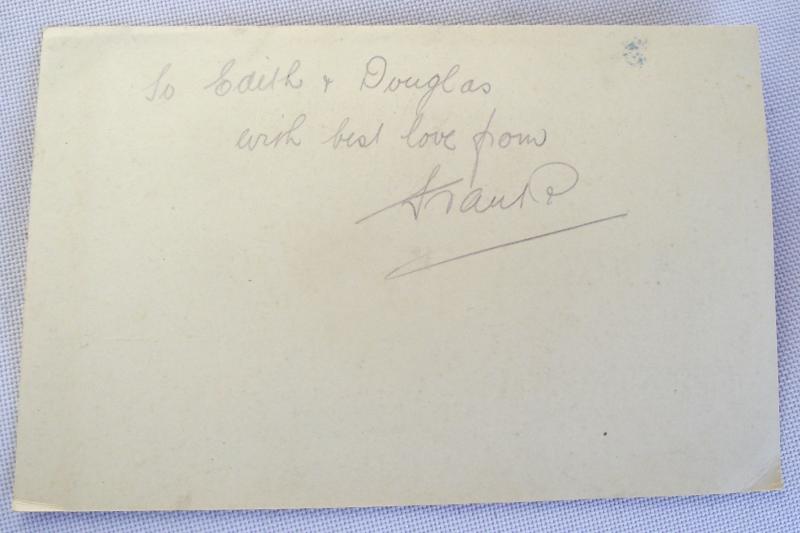 To Edith & Douglas
with best love from
Frank